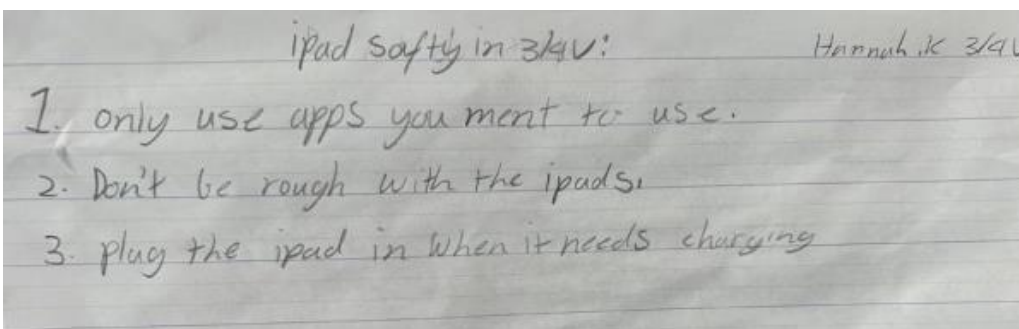 ipad safty in 3/4V: Hannah.K 3/4V
1. only use apps you ment to use.
2. Don't be rough with the ipads.
3. plug the ipad in when it needs charging